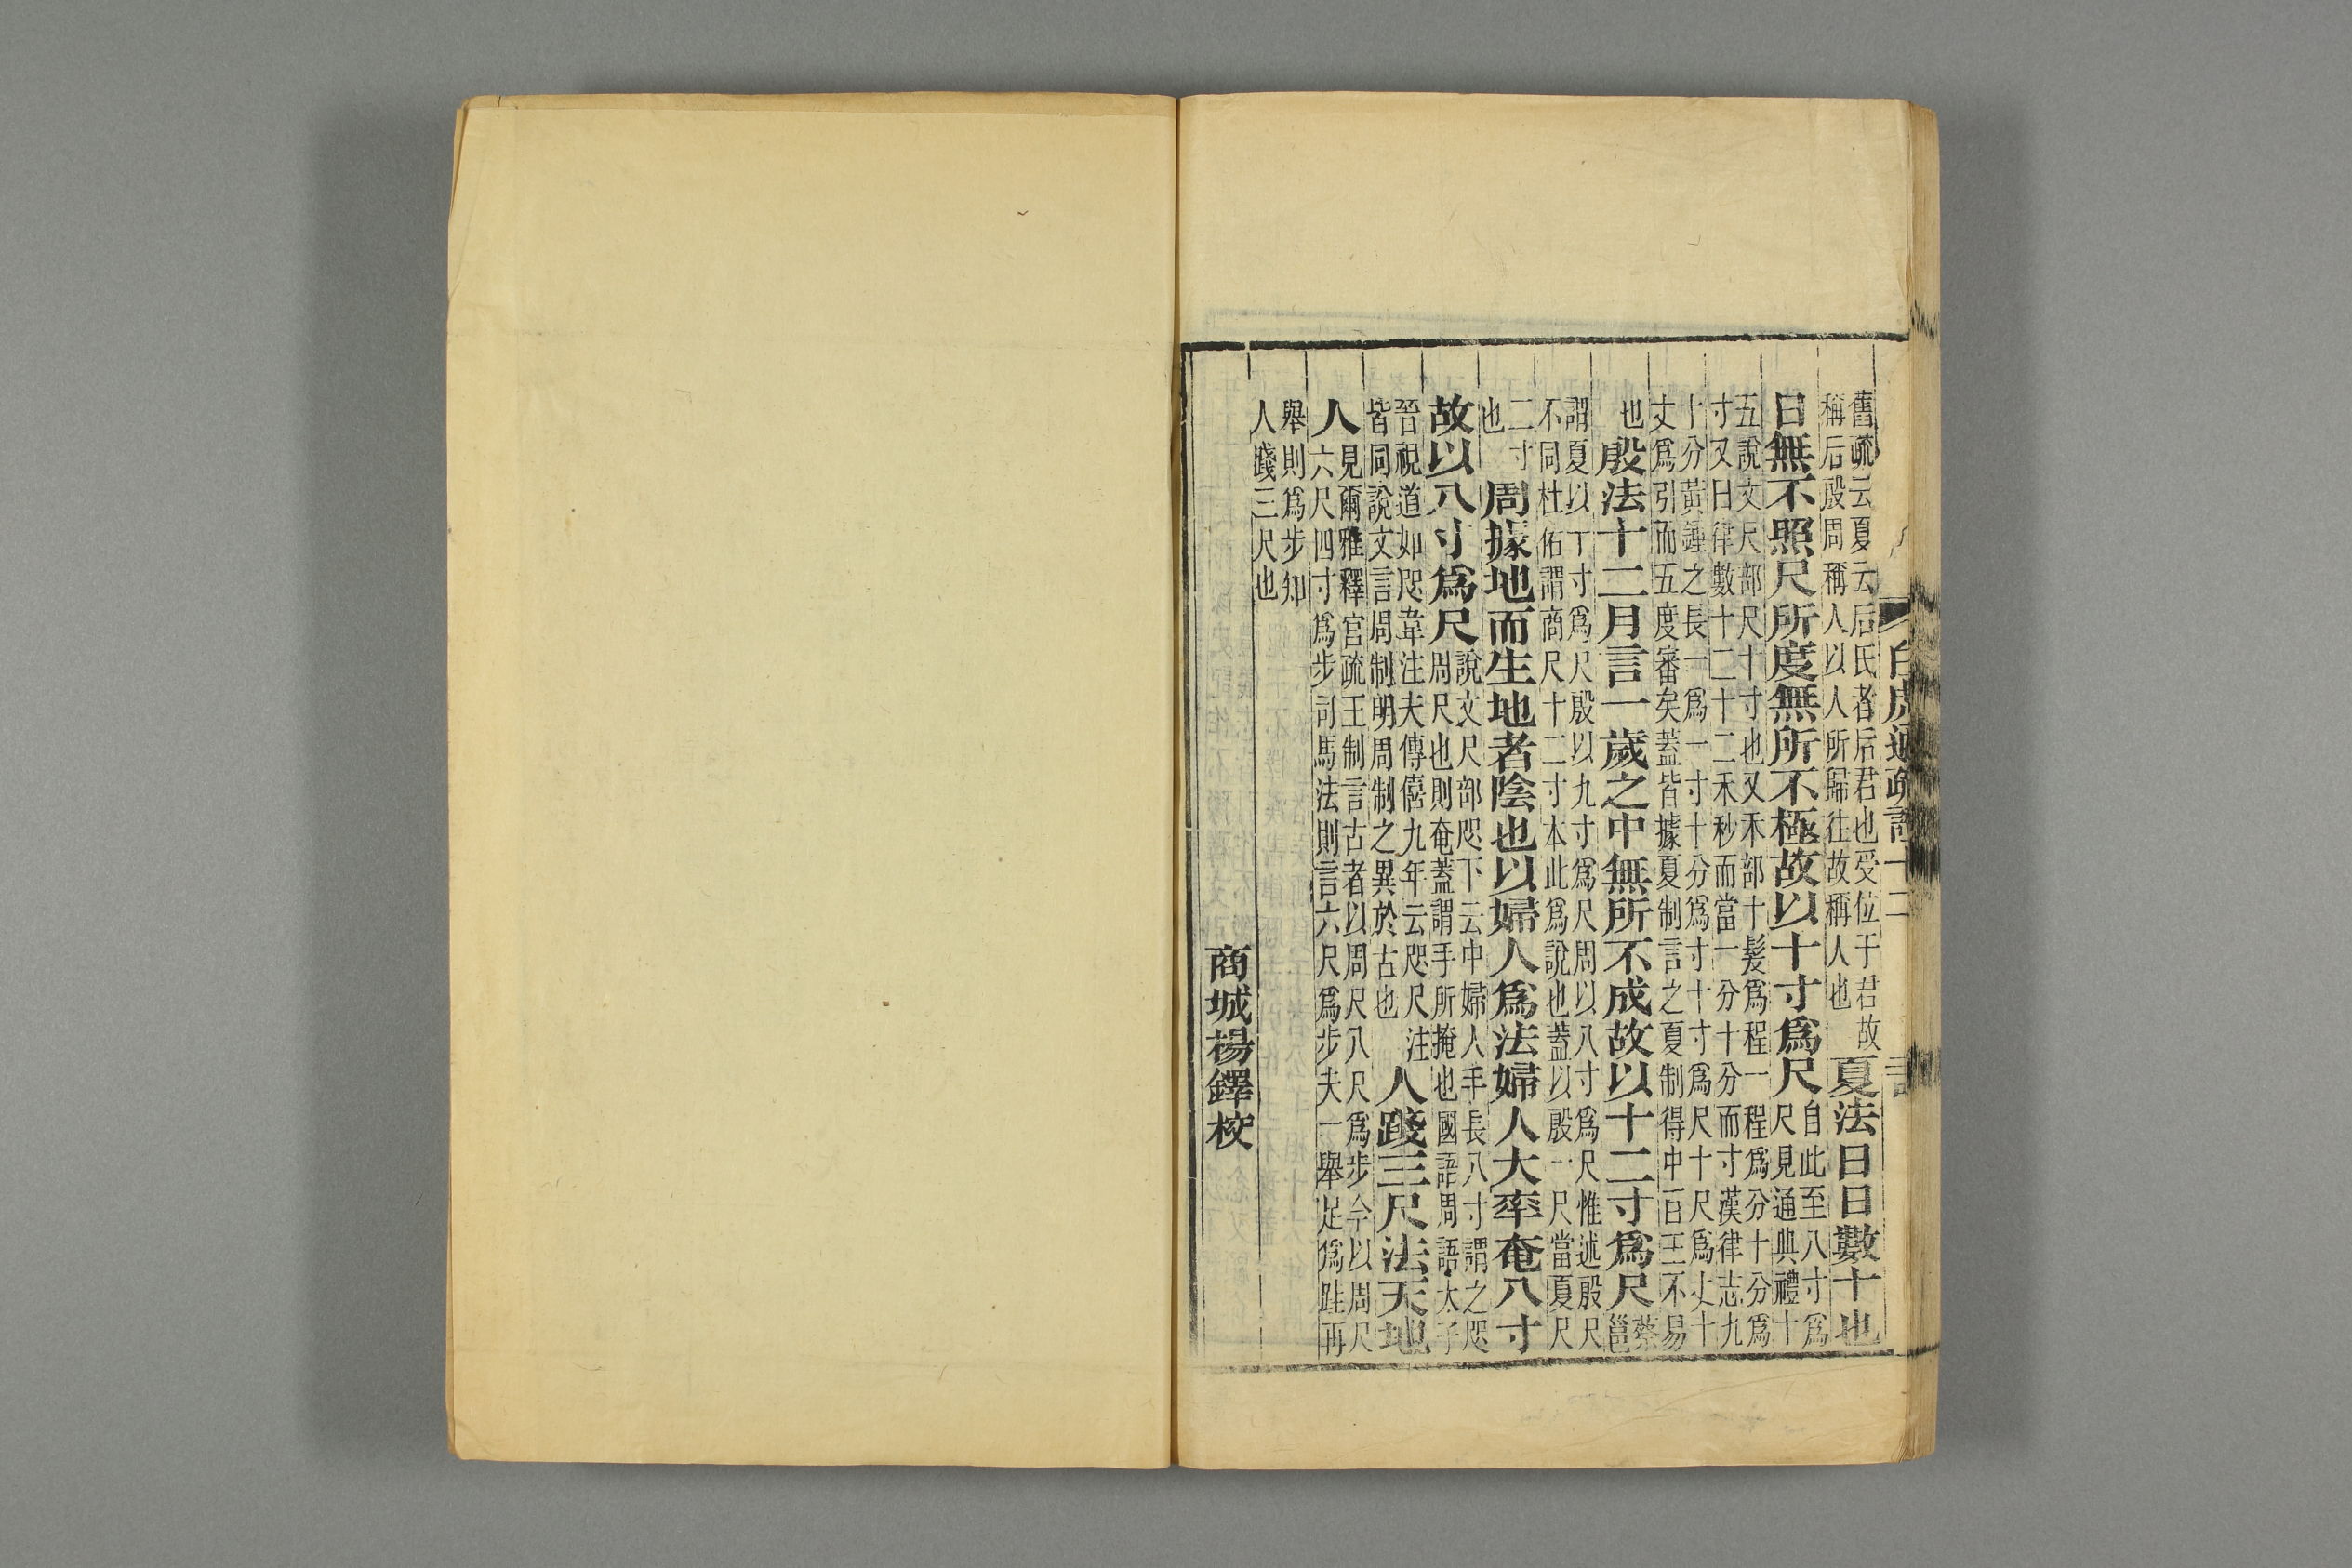 白虎通疏證十二
舊疏云夏云后氏者后君也受位于君故
稱后殷周稱人以人所歸往故稱人也
夏法日日數十也
日無不照尺所度無所不極故以十寸爲尺
自此至八寸爲
尺見通典禮十
五說文尺部尺十寸也又禾部十髮爲程一程爲分十分爲
寸又曰律數十二十二禾秒而當一分十分而寸漢律志九
十分黃鍾之長一爲一寸十分爲寸十寸爲尺十尺爲丈十
丈爲引而五度審矣蓋皆據夏制言之夏制得中百王不易
也
殷法十二月言一歲之中無所不成故以十二寸爲尺
蔡
邕
謂夏以十寸爲尺殷以九寸爲尺周以八寸爲尺惟述殷尺
不同杜佑謂商尺十二寸本此爲說也蓋以殷一尺當夏尺
二寸
也
周據地而生地者陰也以婦人爲法婦人大率奄八寸
故以八寸爲尺
說文尺部咫下云中婦人手長八寸謂之咫
周尺也則奄蓋謂手所掩也國語周語太子
晉視道如咫韋注夫傳僖九年云咫尺注
皆同說文言周制明周制之異於古也
人踐三尺法天地
人
見爾雅釋宮疏王制言古者以周尺八尺爲步今以周尺
六尺四寸爲步司馬法則言六尺爲步夫一舉足爲跬再
舉則爲步知
人踐三尺也
商城楊鐸校